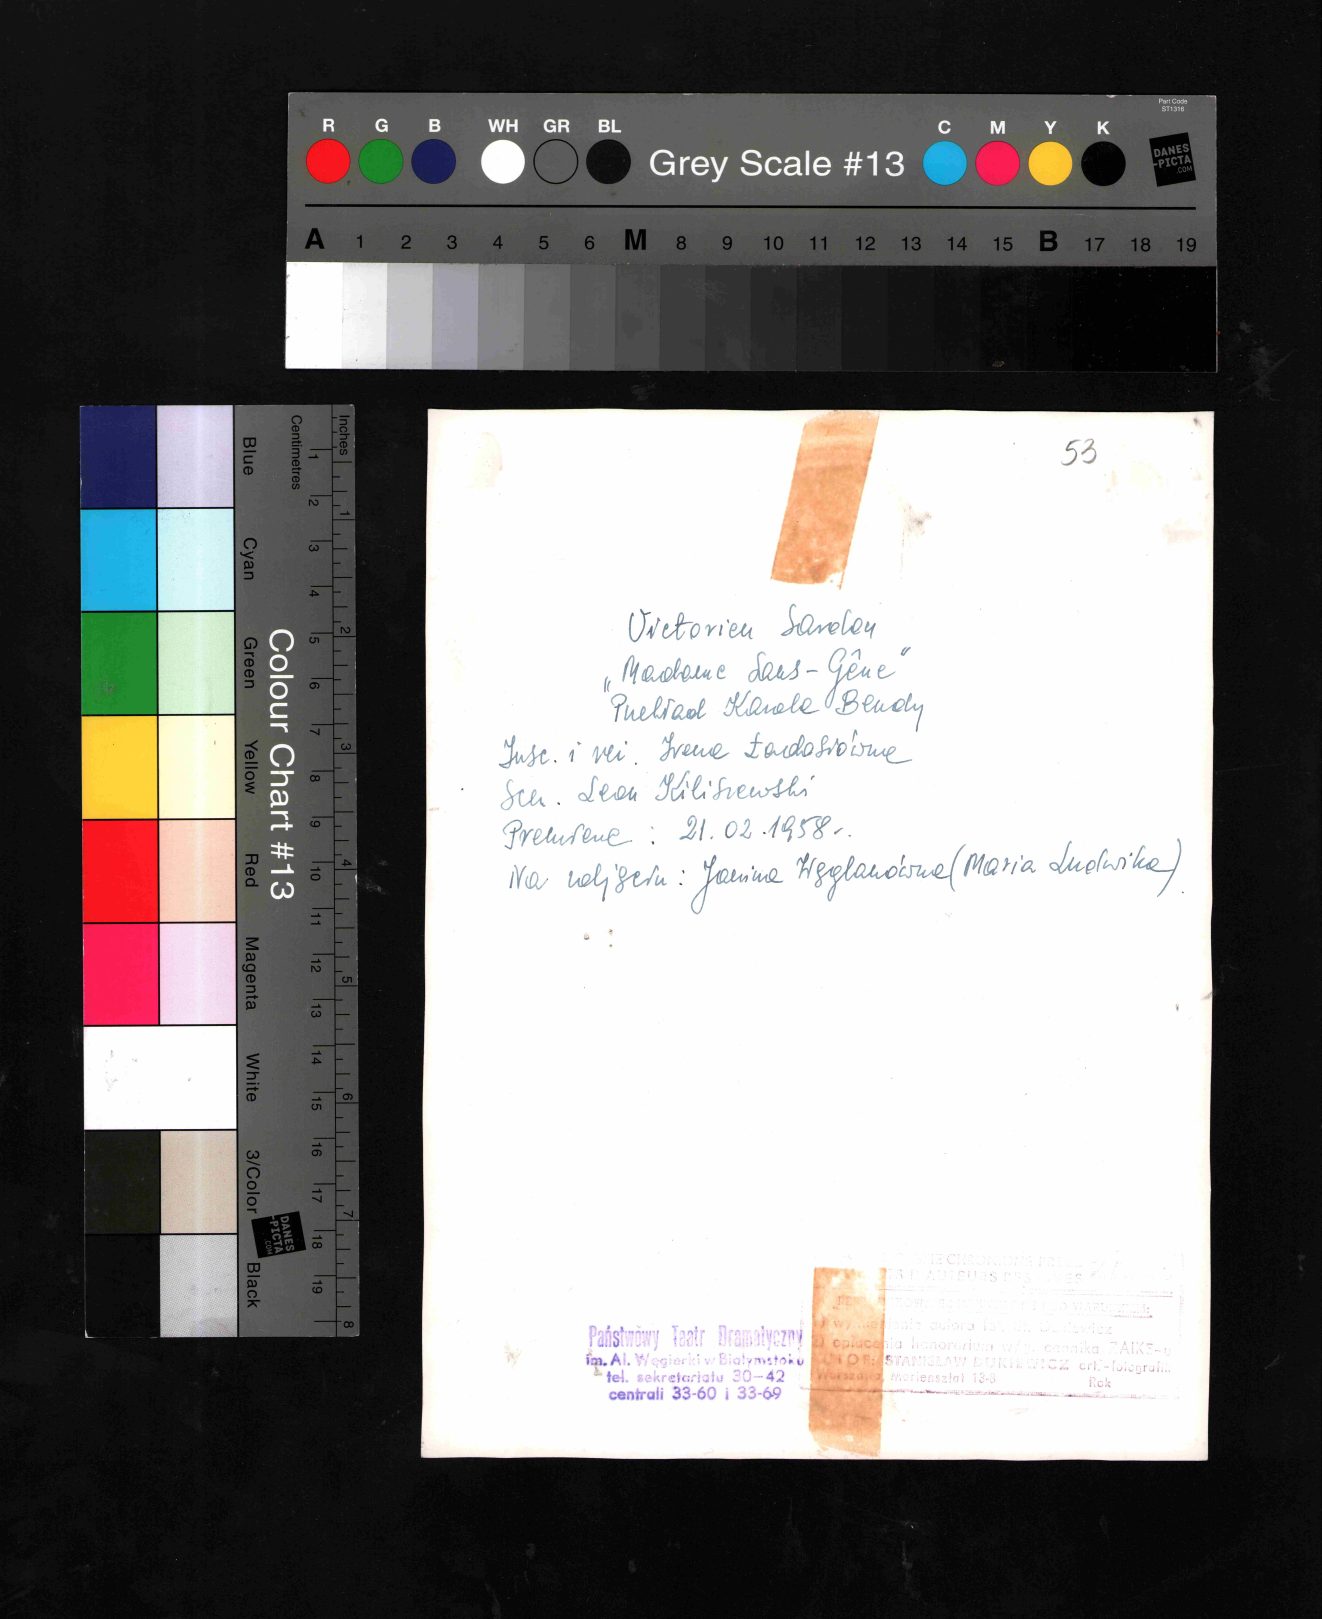 Part Code
ST1316
R G B WH GR BL Grey Scale #13 C M Y K
DANES
-PICTA
.COM
A 1 2 3 4 5 6 M 8 9 10 11 12 13 14 15 B 17 18 19
Colour Chart #13
Blue
Cyan
Green
Yellow
Red
Magenta
White
3/Color
Black
Inches
1 2 3 4 5 6 7 8
Centimetres
1 2 3 4 5 6 7 8 9 10 11 12 13 14 15 16 17 18 19
DANES
-PICTA
.COM
53
Victorien Sardou
„Madame Sans-Gêne"
Przekład Karola Bendy
Insc. i reż. Irena Ładosiówna
Scen. Leon Kiliszewski
Premiera: 21.02.1958 r.
Na zdjęciu: Janina Węglanówna (Maria Ludwika)
Państwowy Teatr Dramatyczny
im. Al. Węgierki w Białymstoku
tel. sekretariatu 30-42
centrali 33-60 i 33-69
AUTEURS DES
autora
honorarium ZAIKS-u
STANISŁAW art.-fotografik
Warszawa, Mariensztat
Rok